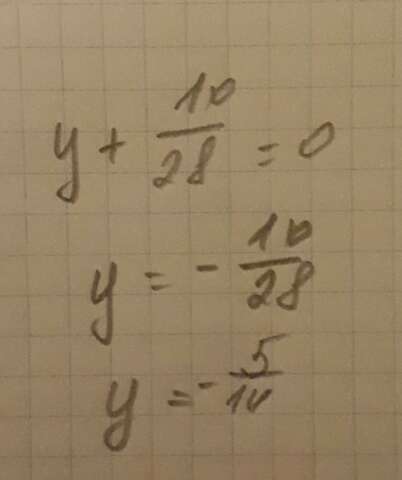 y + 10/28 = 0
y = - 10/28
y = - 5/14